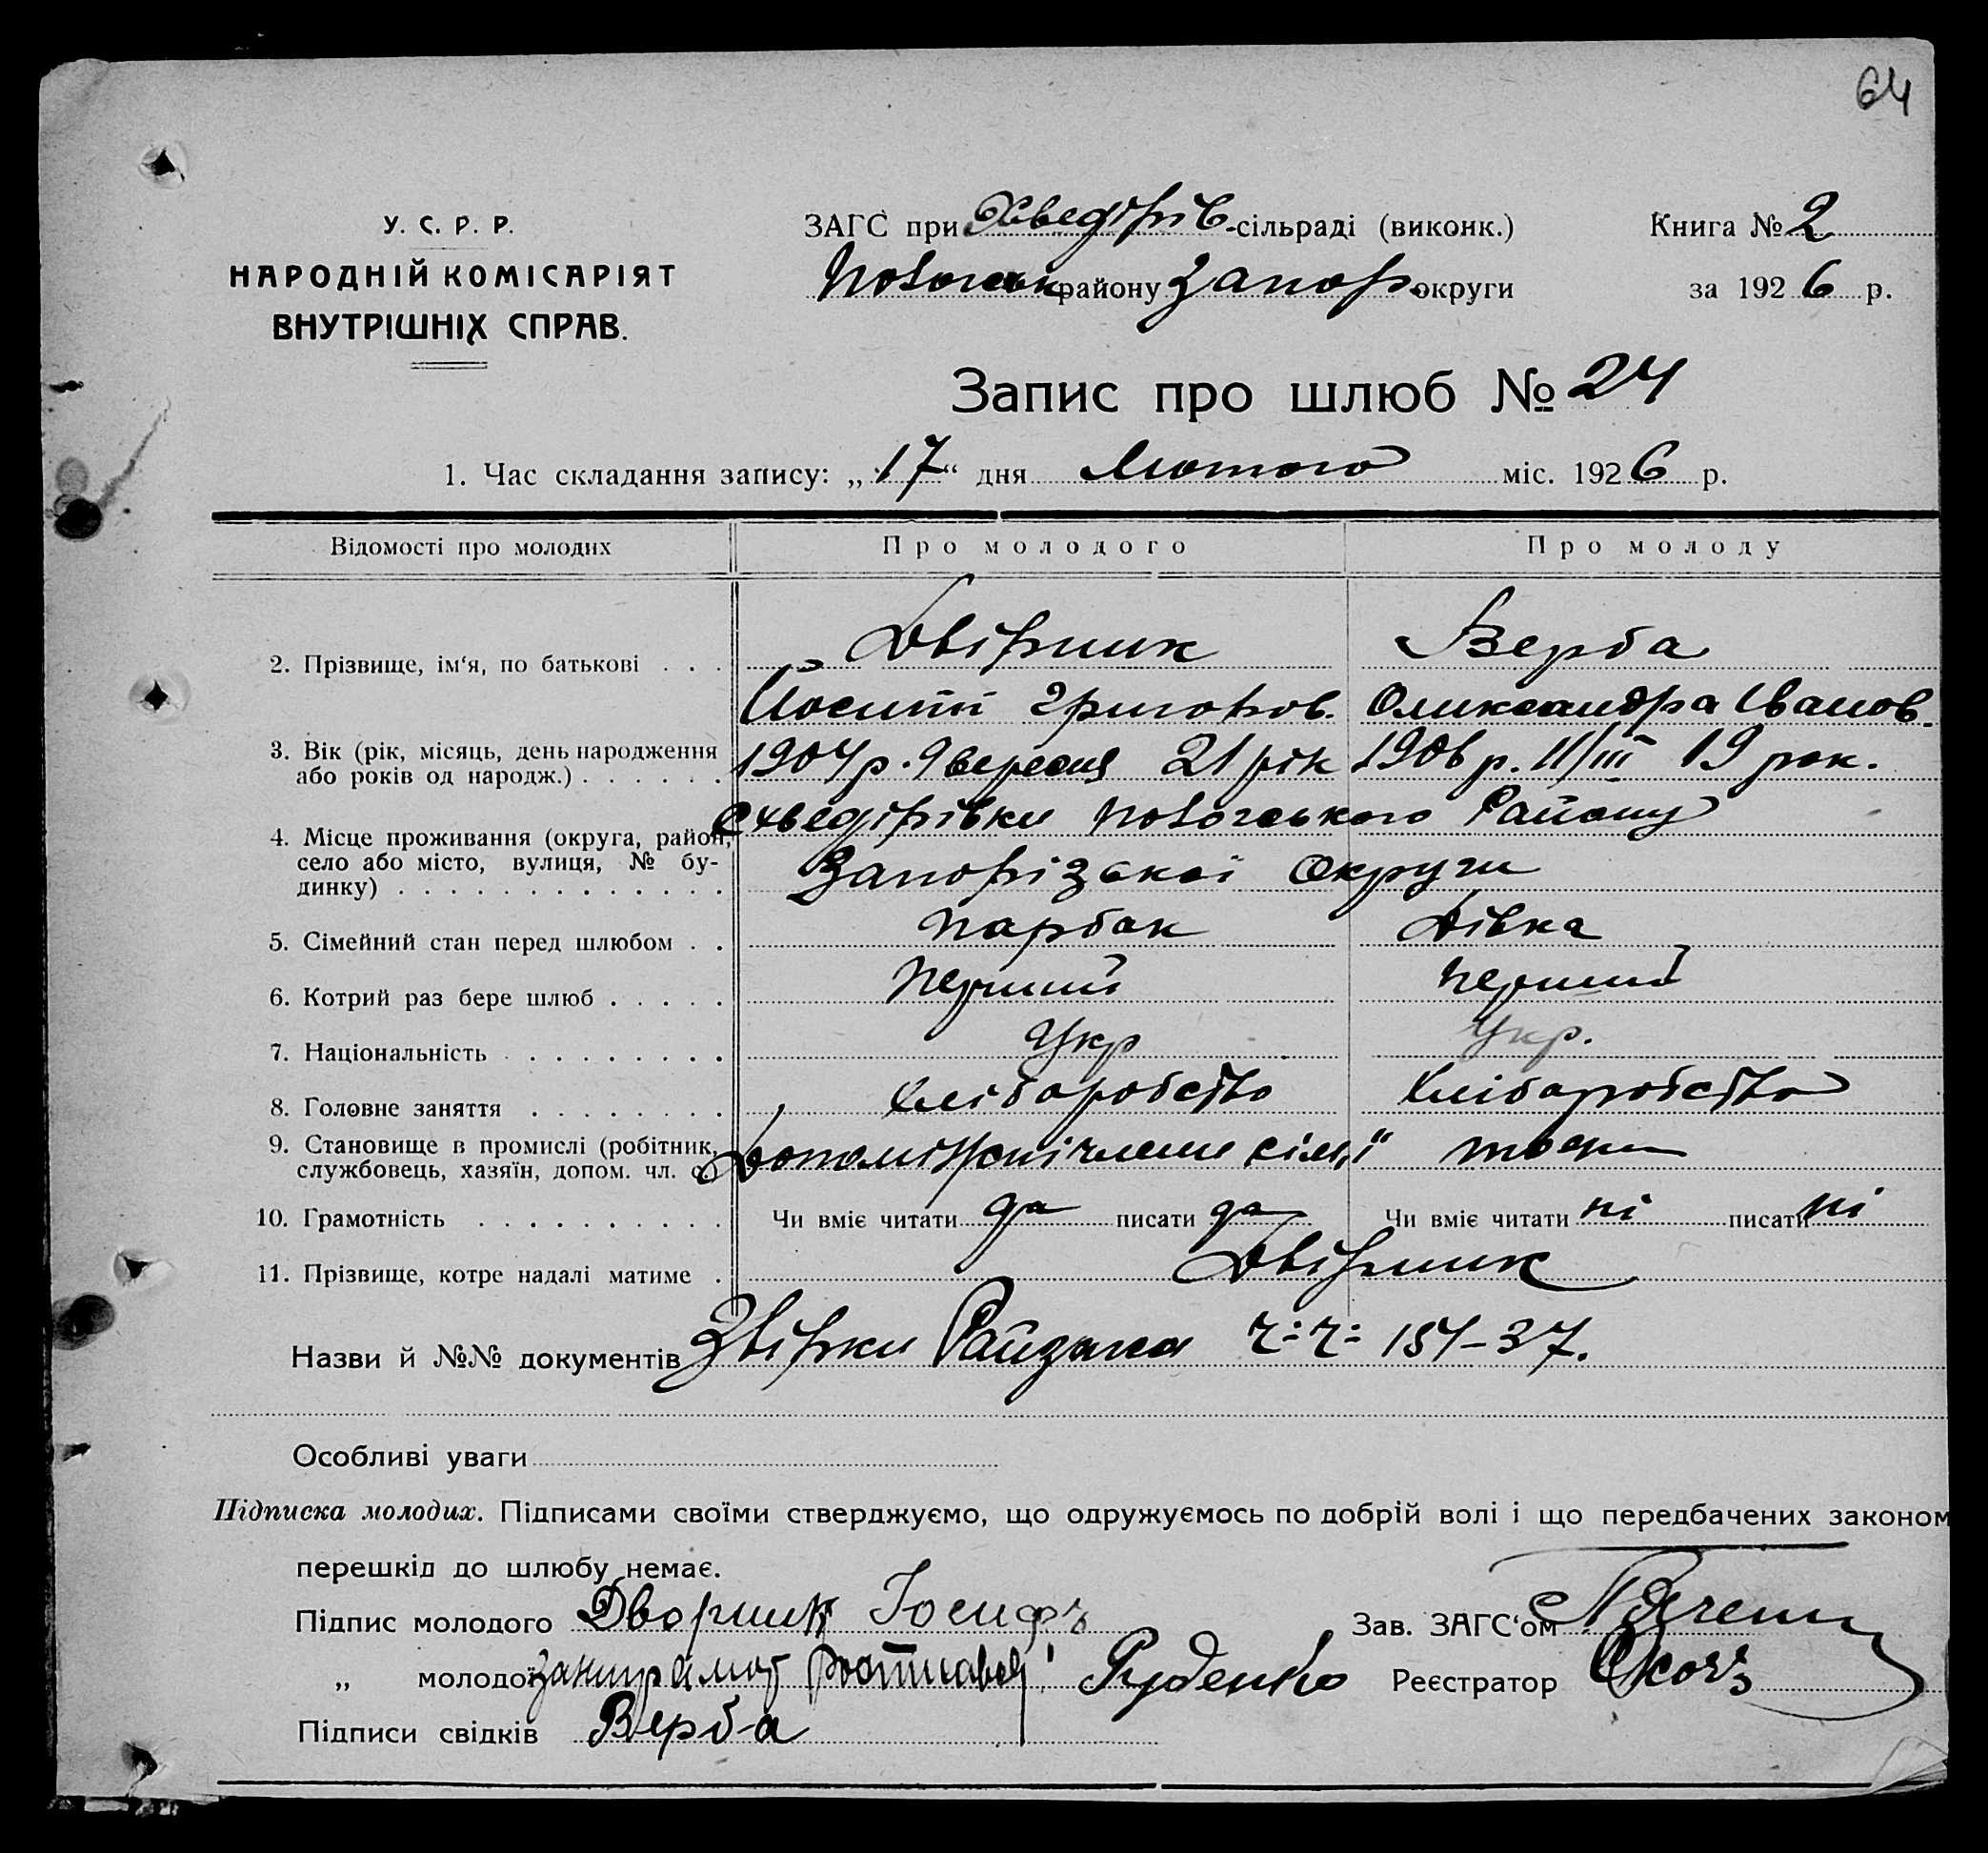 64
У. С. Р. Р.
НАРОДНІЙ КОМІСАРІЯТ
ВНУТРІШНІХ СПРАВ.
ЗАГС при Хведірів-сільраді (виконк.)
району Запор. округи
Книга № 2
за 1926 р.
Запис про шлюб № 24
1. Час складання запису: „17“ дня Лютого міс. 1926 р.
Відомості про молодих Про молодого Про молоду
2. Прізвище, ім‘я, по батькові . . . Двірник Верба
Йосипп Григоров. Олександра Іванов.
3. Вік (рік, місяць, день народження
або років од народж.) . . . . . . 1904 р. 9 вересня 21 рік 1906 р. 11/III 19 рок.
4. Місце проживання (округа, район,
село або місто, вулиця, № бу-
динку) . . . . . . . . . . . . .
с Хведірівки Району
Запорізської Округи
5. Сімейний стан перед шлюбом . . парбок Дівка
6. Котрий раз бере шлюб . . . . . перший перший
7. Національність . . . . . . . . . Укр Укр.
8. Головне заняття . . . . . . . . хліборобство хліборобство
9. Становище в промислі (робітник,
службовець, хазяїн, допом. чл. с.) Допоміжні члени сім'ї
10. Грамотність . . . . . . . . . . Чи вміє читати да писати да Чи вміє читати ні писати ні
11. Прізвище, котре надалі матиме . Двірник
Назви й №№ документів Звірки Райзагса ч:ч: 151-37.
Особливі уваги
Підписка молодих. Підписами своїми стверджуємо, що одружуємось по добрій волі і що передбачених законом
перешкід до шлюбу немає.
Підпис молодого Дворник Іосифъ Зав. ЗАГС‘ом
„ молодої Руденко Реєстратор
Підписи свідків Верба